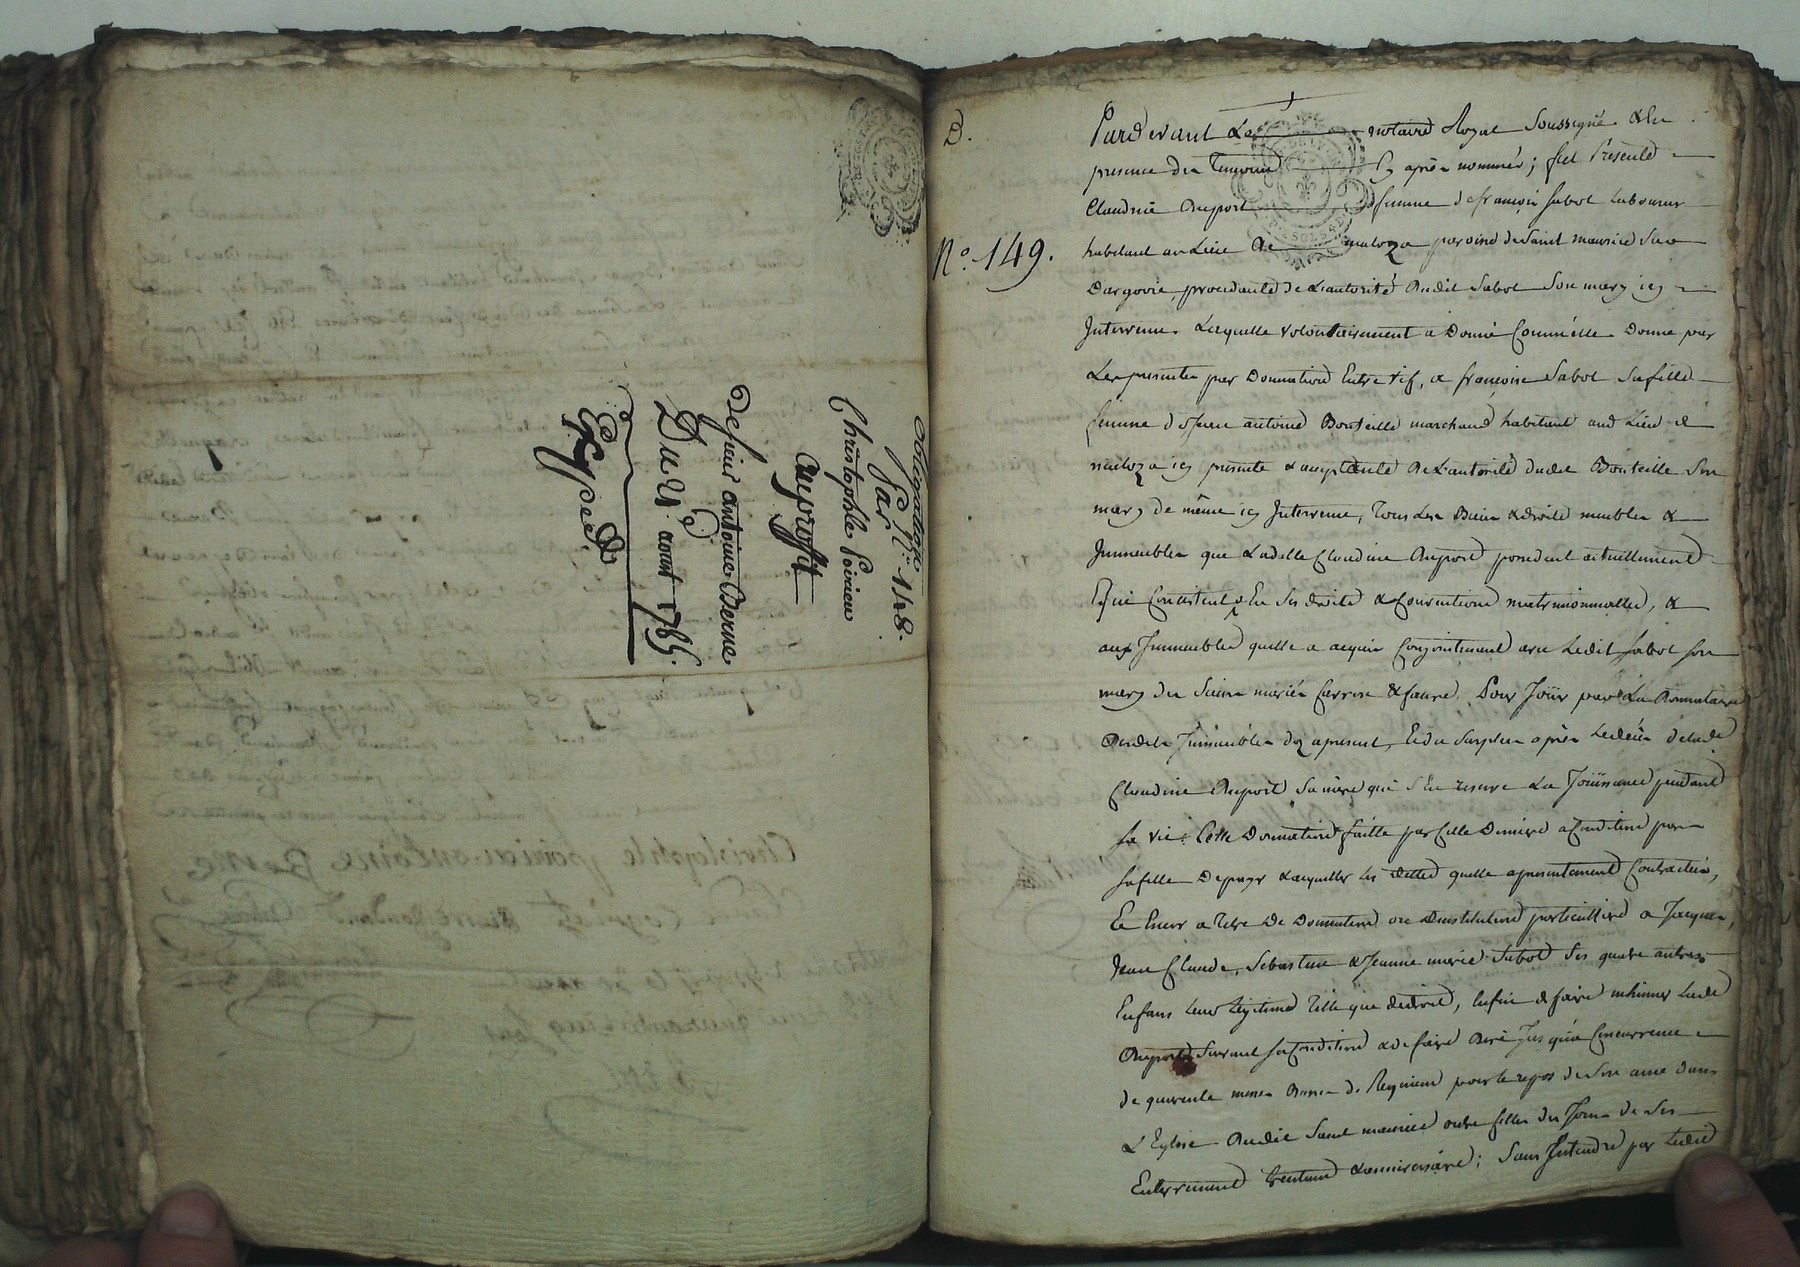 obligation N.° 148.
Par
Christophle Poirieu
au proffit
de sieur antoine Berne
Du 21 aoust 1785.
Expédé
D.
N.° 149.
Pardevant Le notaire Royal Soussigné & En
presence des temoins Cy après nommés; fut Présente
Claudine Duport femme de françois Sabot Laboureur
habitant au Lieu de maloza paroisse de Saint maurice Sur
Dargoire, procedante de L'autorité dudit Sabot Son mary icy
Intervenu. Laquelle volontairement a Donné Comme elle Donne par
Les presentes par Donnation Entre vif, a françoise Sabot Sa fille
femme de Sieur antoine Bouteille marchand habitant aud Lieu de
maloza icy presente & acceptante de L'autorité dudit Bouteille Son
mary de même icy Intervenu, Tous Les Biens & droits meubles &
Immeubles que Ladite Claudine Duport possedent actuellement
Et qui Consistent En Ses droits & Conventions matrimonialles, &
aux Immeubles quelle a acquis Conjointement avec Ledit Sabot Son
mary des Sieurs mariés & faure. Pour Joüir par La Donnataire
Desdits Immeubles dez apresent, Et du Surplus après Le décès de lade
Claudine Duport Sa mere qui S'En reserve La Joüissance pendant
Sa vie: Cette Donnation faitte par Cette Derniere a Condition par
Sa fille De payer & acquitter les dettes quelle a presentement Contractées,
Et Encor a titre De Donnation ou Dinstitution particulliere a Jacques,
Jean Claude, Sebastien & Jeanne marie Sabot Ses quatre autres
Enfans Leur Légitime telle que de droit, Enfin de faire inhumer Lade
Duport Suivant Sa Condition & de faire dire Jusqu'a Concurrence
de quarente messes Basses de Requiem pour le repos de Son ame dans
L'Eglise dudit Saint maurice outre Celles des Jours de Ses
Enterrement & anniversaire; Sans Entendre par Ladie